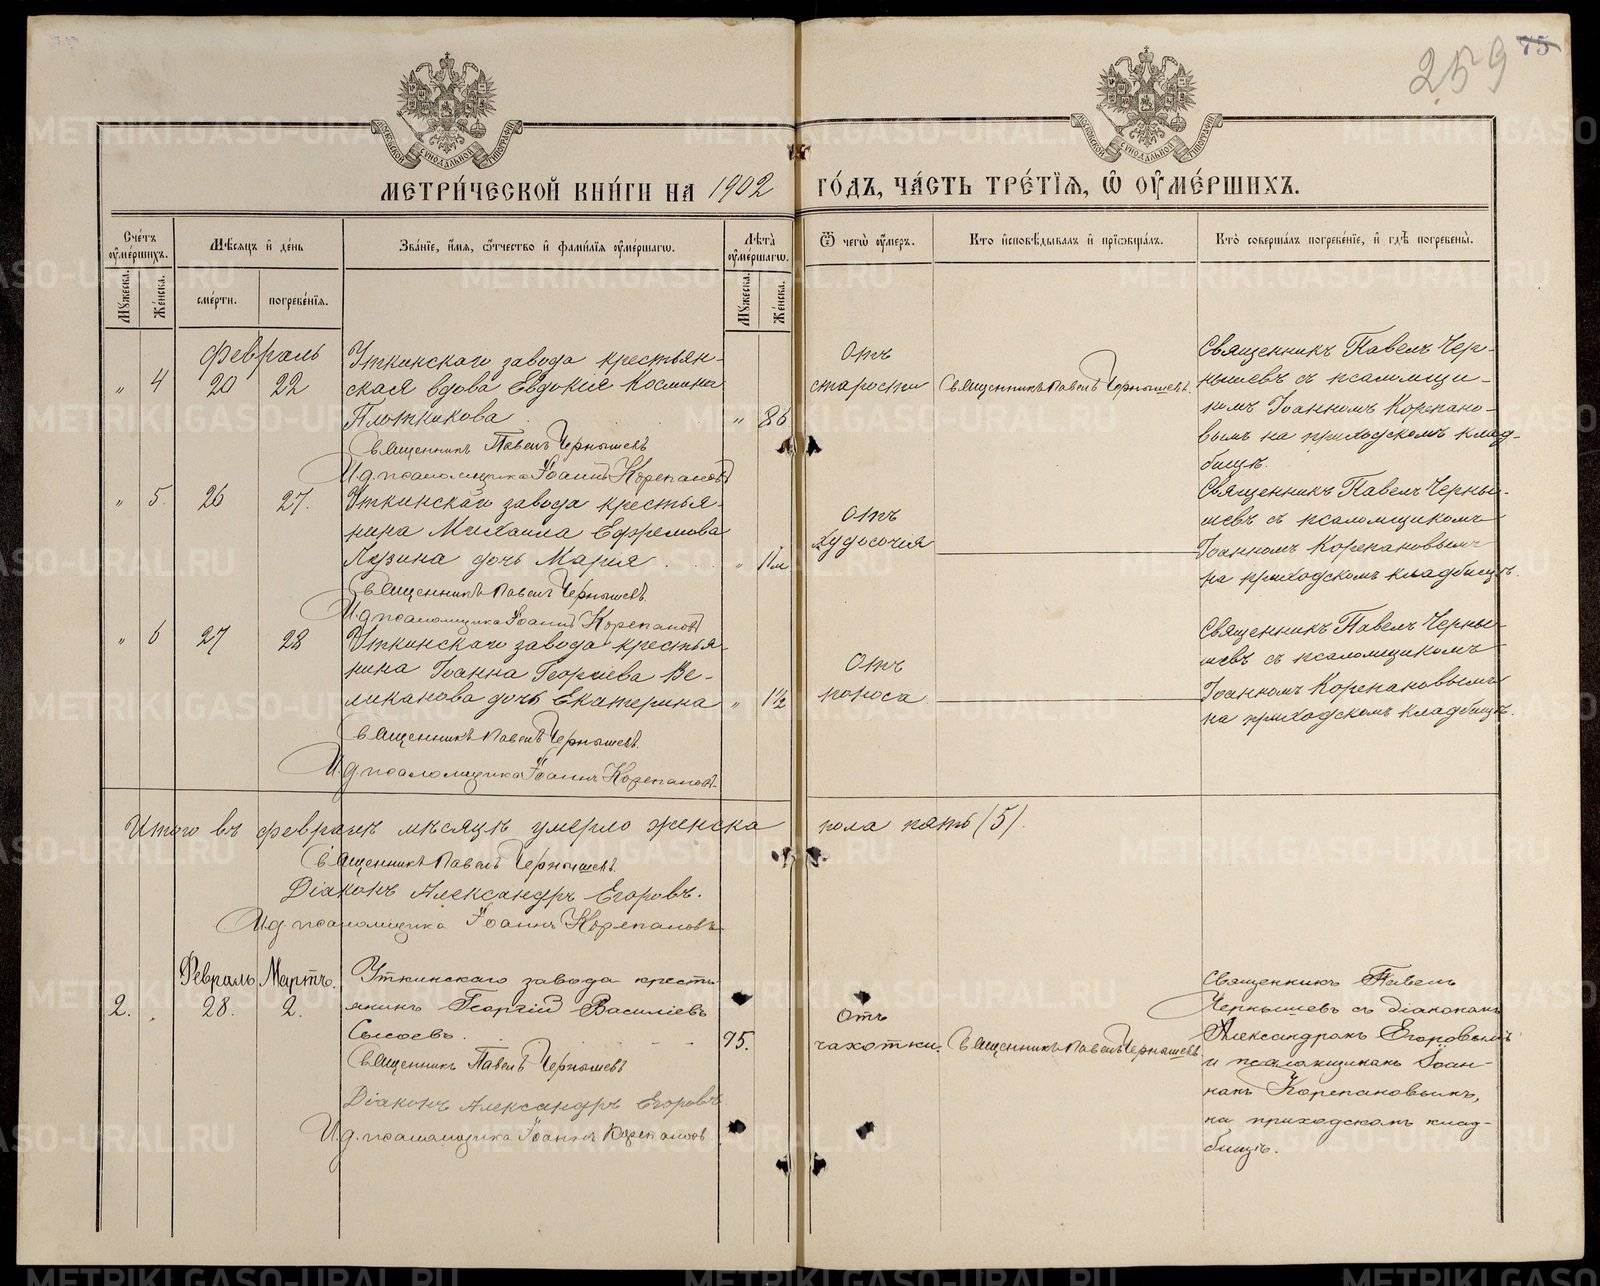 259 75
МОСКОВСКОЙ СѴНОДАЛЬНОЙ ТИПОГРАФІИ
МОСКОВСКОЙ СѴНОДАЛЬНОЙ ТИПОГРАФІИ
МЕТРИ́ЧЕСКОЙ КНИ́ГИ НА 1902 ГО́ДЪ, ЧА́СТЬ ТРЕ́ТІѦ, Ѡ҆ ОУ҆МЕ́РШИХЪ.
Сче́тъ оу҆ме́ршихъ.
Мꙋ́жеска.
Же́нска.
Мѣ́сѧцъ и҆ де́нь
сме́рти.
погребе́нїѧ.
Зва́нїе, и҆́мѧ, ѻ҆́тчество и҆ фами́лїѧ оу҆ме́ршагѡ.
Лѣ́та оу҆ме́ршагѡ.
Мꙋ́жеска.
Же́нска.
Ѿ чегѡ̀ оу҆́меръ.
Кто̀ и҆сповѣ́дывалъ и҆ прїѡбща́лъ.
Кто̀ соверша́лъ погребе́нїе, и҆ гдѣ̀ погребены̀.
Февраль
" 4 20 22
Уткинскаго завода крестьян-
ская вдова Евдокия Космина
Плотникова " 86
Священникъ Павелъ Чернышевъ
И.д. псаломщика Іоаннъ Корепановъ
Отъ
старости
Священникъ Павелъ Чернышевъ.
Священникъ Павелъ Чер-
нышевъ съ псаломщи-
комъ Іоанномъ Корепано-
вымъ на приходскомъ клад-
бищѣ.
" 5. 26 27.
Уткинскаго завода крестья-
нина Михаила Ефремова
Лузина дочь Мария " 11 м
Священникъ Павелъ Чернышевъ.
И.д. псаломщика Іоаннъ Корепановъ
Отъ
худосочія
Священникъ Павелъ Черны-
шевъ съ псаломщикомъ
Іоанномъ Корепановымъ
на приходскомъ кладбищѣ.
" 6 27 28
Уткинскаго завода крестья-
нина Іоанна Георгиева Ве-
ликанова дочь Екатерина " 1½
Священникъ Павелъ Чернышевъ.
И.д. псаломщика Іоаннъ Корепановъ.
Отъ
поноса
Священникъ Павелъ Черны-
шевъ съ псаломщикомъ
Іоанномъ Корепановымъ
на приходскомъ кладбищѣ.
Итого въ февралѣ мѣсяцѣ умерло женска пола пять (5).
Священникъ Павелъ Чернышевъ.
Діаконъ Александръ Егоровъ.
И.д. псаломщика Іоаннъ Корепановъ.
Февраль Мартъ.
2. 28. 2.
Уткинскаго завода кресть
янинъ Георгій Василіевъ
Сысоевъ. 75.
Священникъ Павелъ Чернышевъ
Діаконъ Александръ Егоровъ
И.д. псаломщика Іоаннъ Корепановъ
Отъ
чахотки.
Священникъ Павелъ Чернышевъ
Священникъ Павелъ
Чернышевъ съ діакономъ
Александромъ Егоровымъ
и псаломщикомъ Іоан-
номъ Корепановымъ,
на приходскомъ клад-
бищѣ.
METRIKI.GASO-URAL.RU